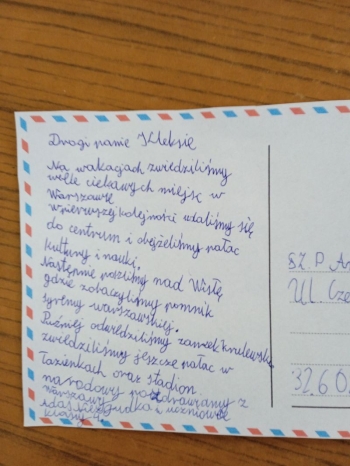 Drogi panie Kleksie
Na wakacjach zwiedziliśmy
wiele ciekawych miejsc w
Warszawie
W pierwszej kolejności udaliśmy się
do centrum i obejżeliśmy pałac
kultury i nauki.
Następnie poszliśmy nad Wisłę
gdzie zobaczyliśmy pomnik
syreny warszawskiej.
Później odwiedziliśmy zamek krulewski
zwiedziliśmy jeszcze pałac w
Łazienkach oraz stadion
narodowy pozdrawiamy z
Warszawy
i uczniowie
klasy 4
SZ. P. A
Ul. Cze
32 60